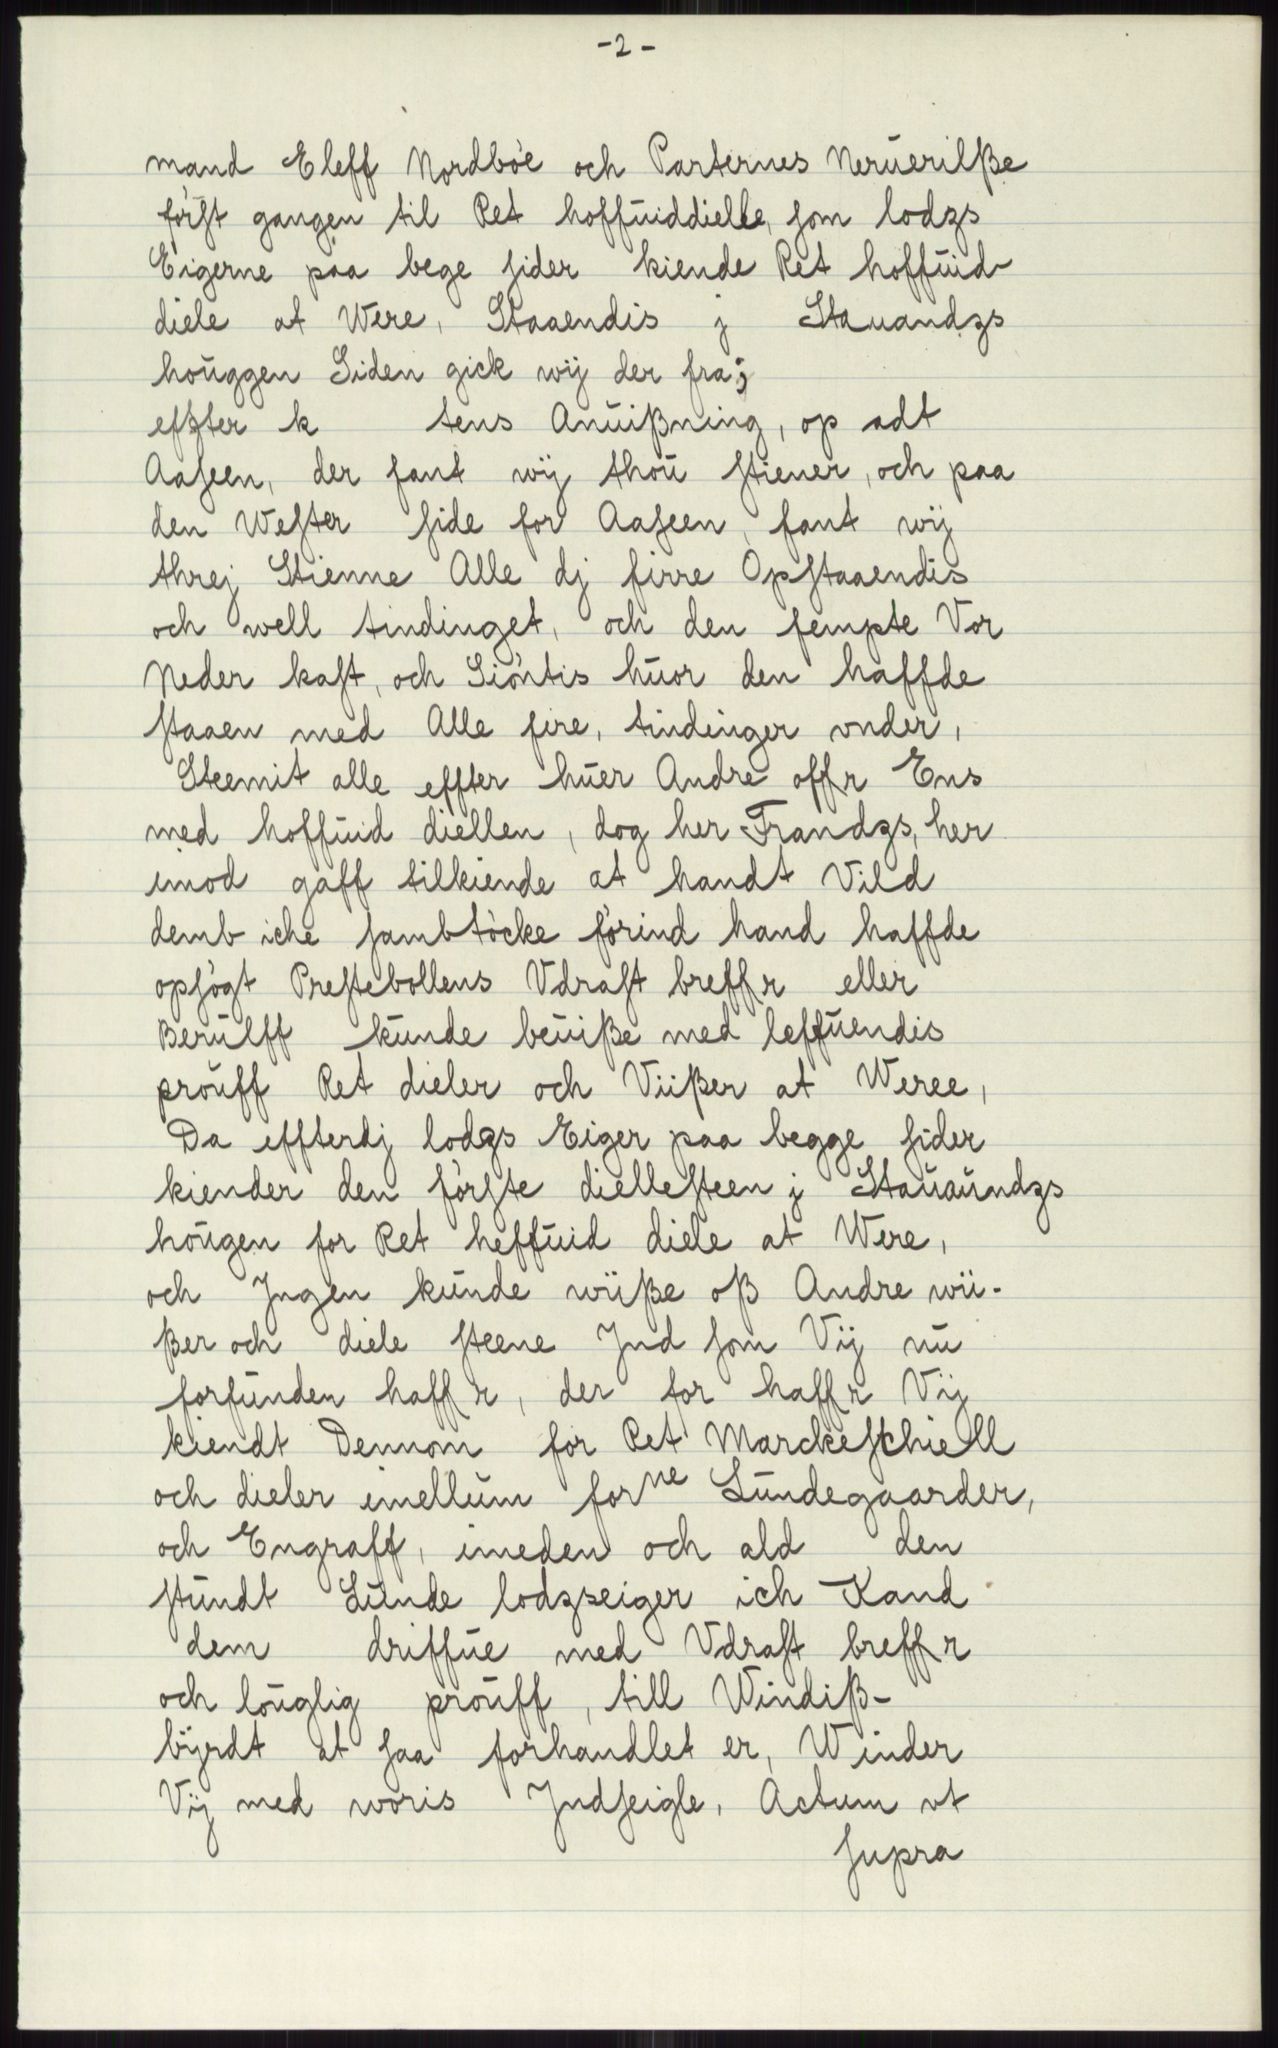 -2-
mand Eleff Nordbòe och Parternes Neruerilße
fòrst gangen til Ret hoffuiddielle, som lodzs
Eigerne paa bege sider kiende Ret hoffuid-
diele at Were, Staaendis j Stauandzs
houggen Siden gick wij der fra;
effter k tens Anuißning, op adt
Aaseen, der fant wij thou stiener, och paa
den Wester side for Aaseen, fant wij
threj Stienne Alle dj firre Opstaaendis
och well tindinget, och den fempte Vor
Neder kast, och Siòntis huor den haffde
staaen med Alle fire, tindinger vnder,
Steemit alle effter huer Andre offr Ens
med hoffuid diellen, dog her Frandzs, her
imod gaff tilkiende at handt Vild
demb iche sambtòcke fòrind hand haffde
opsògt Prestebollens Vdrast breffr eller
Berulff kunde beuiße med leffuendis
prouff Ret dieler och Viißer at Weree,
Da effterdj lodzs Eiger paa begge sider
kiender den fòrste diellesteen j Stauaundzs
hougen for Ret heffuid diele at Were,
och Jngen kunde wiiße oß Andre wii-
ßer och diele steene Jnd som Vij nu
forfunden haffr, der for haffr Vij
kiendt Dennom for Ret Marckeschiell
och dieler imellum forne Lundegaarder,
och Engraff, imeden och ald den
stundt Lunde lodzseiger ich Kand
dem driffue med Vdrast breffr
och louglig prouff, till Windiß-
bÿrdt at saa forhandlet er, Winder
Vij med woris Jndseigle, Actum vt
supra